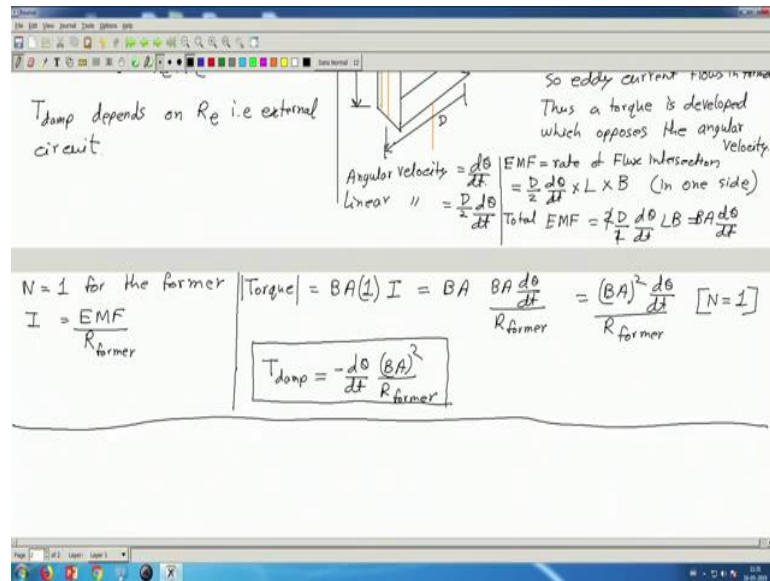 File Edit View Journal Tools Options Help
T_damp depends on R_e i.e external
circuit.
D
Angular velocity = dθ/dt
Linear " = D/2 dθ/dt
so eddy current flows in former
Thus a torque is developed
which opposes the angular
velocity.
EMF = rate of Flux Intersection
= D/2 dθ/dt × L × B (in one side)
Total EMF = 2 D/2 dθ/dt LB = BA dθ/dt
N = 1 for the former
I = EMF/R_former
|Torque| = BA(1) I = BA BA dθ/dt / R_former = (BA)² dθ/dt / R_former [N=1]
T_damp = -dθ/dt (BA)²/R_former
Page 2 of 2 Layer: Layer 1